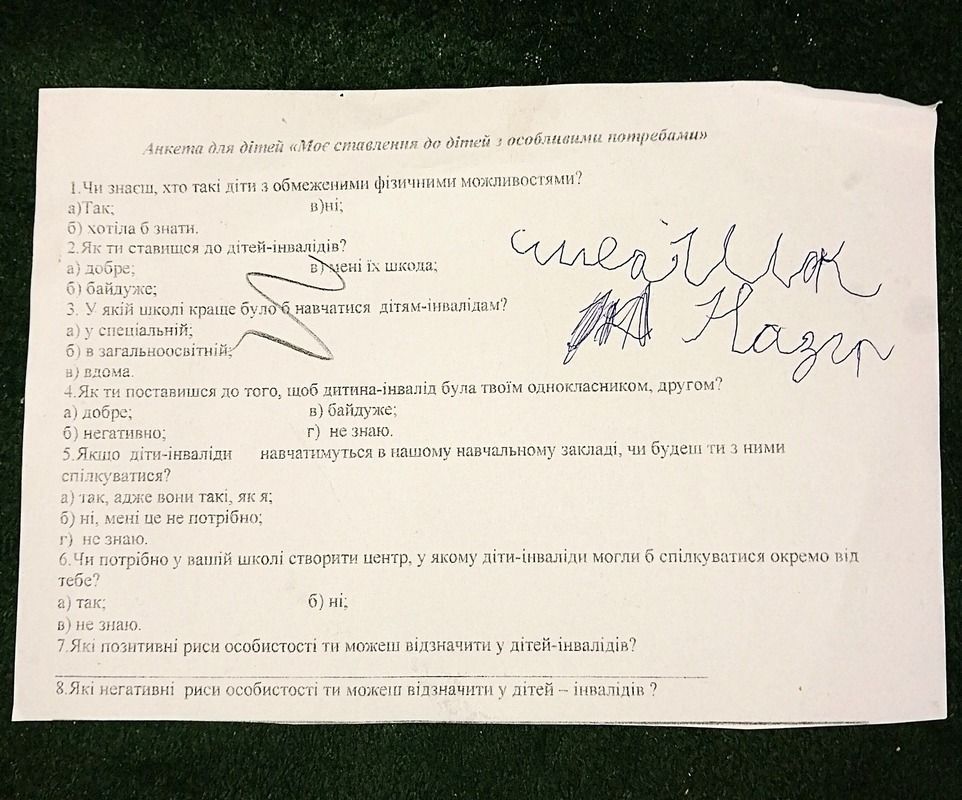 Анкета для дітей «Моє ставлення до дітей з особливими потребами»
1.Чи знаєш, хто такі діти з обмеженими фізичними можливостями?
а)Так; в)ні;
б) хотіла б знати.
2.Як ти ставишся до дітей-інвалідів?
а) добре; в) мені їх шкода;
б) байдуже;
3. У якій школі краще було б навчатися дітям-інвалідам?
а) у спеціальній;
б) в загальноосвітній;
в) вдома.
4.Як ти поставишся до того, щоб дитина-інвалід була твоїм однокласником, другом?
а) добре; в) байдуже;
б) негативно; г) не знаю.
5.Якщо діти-інваліди навчатимуться в нашому навчальному закладі, чи будеш ти з ними
спілкуватися?
а) так, адже вони такі, як я;
б) ні, мені це не потрібно;
г) не знаю.
6.Чи потрібно у вашій школі створити центр, у якому діти-інваліди могли б спілкуватися окремо від
тебе?
а) так; б) ні;
в) не знаю.
7.Які позитивні риси особистості ти можеш відзначити у дітей-інвалідів?
8.Які негативні риси особистості ти можеш відзначити у дітей – інвалідів ?